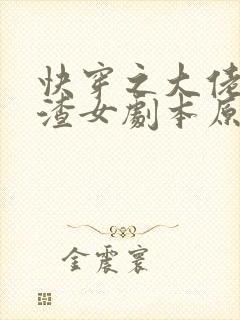 快穿之大佬
渣女劇本原
金震寰